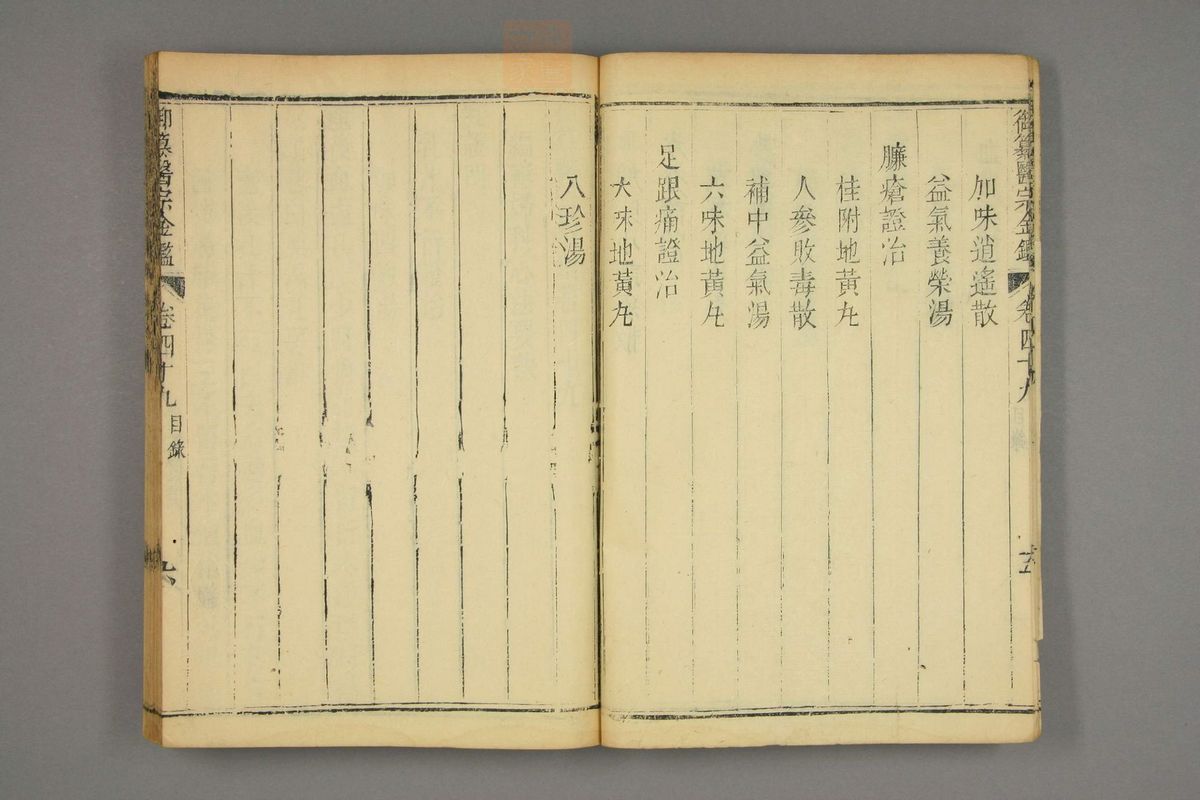 御纂醫宗金鑑 卷四十九 目錄 五
加味逍遙散
益氣養榮湯
臁瘡證治
桂附地黃丸
人參敗毒散
補中益氣湯
六味地黃丸
足跟痛證治
六味地黃丸
八珍湯
御纂醫宗金鑑 卷四十九 目錄 六